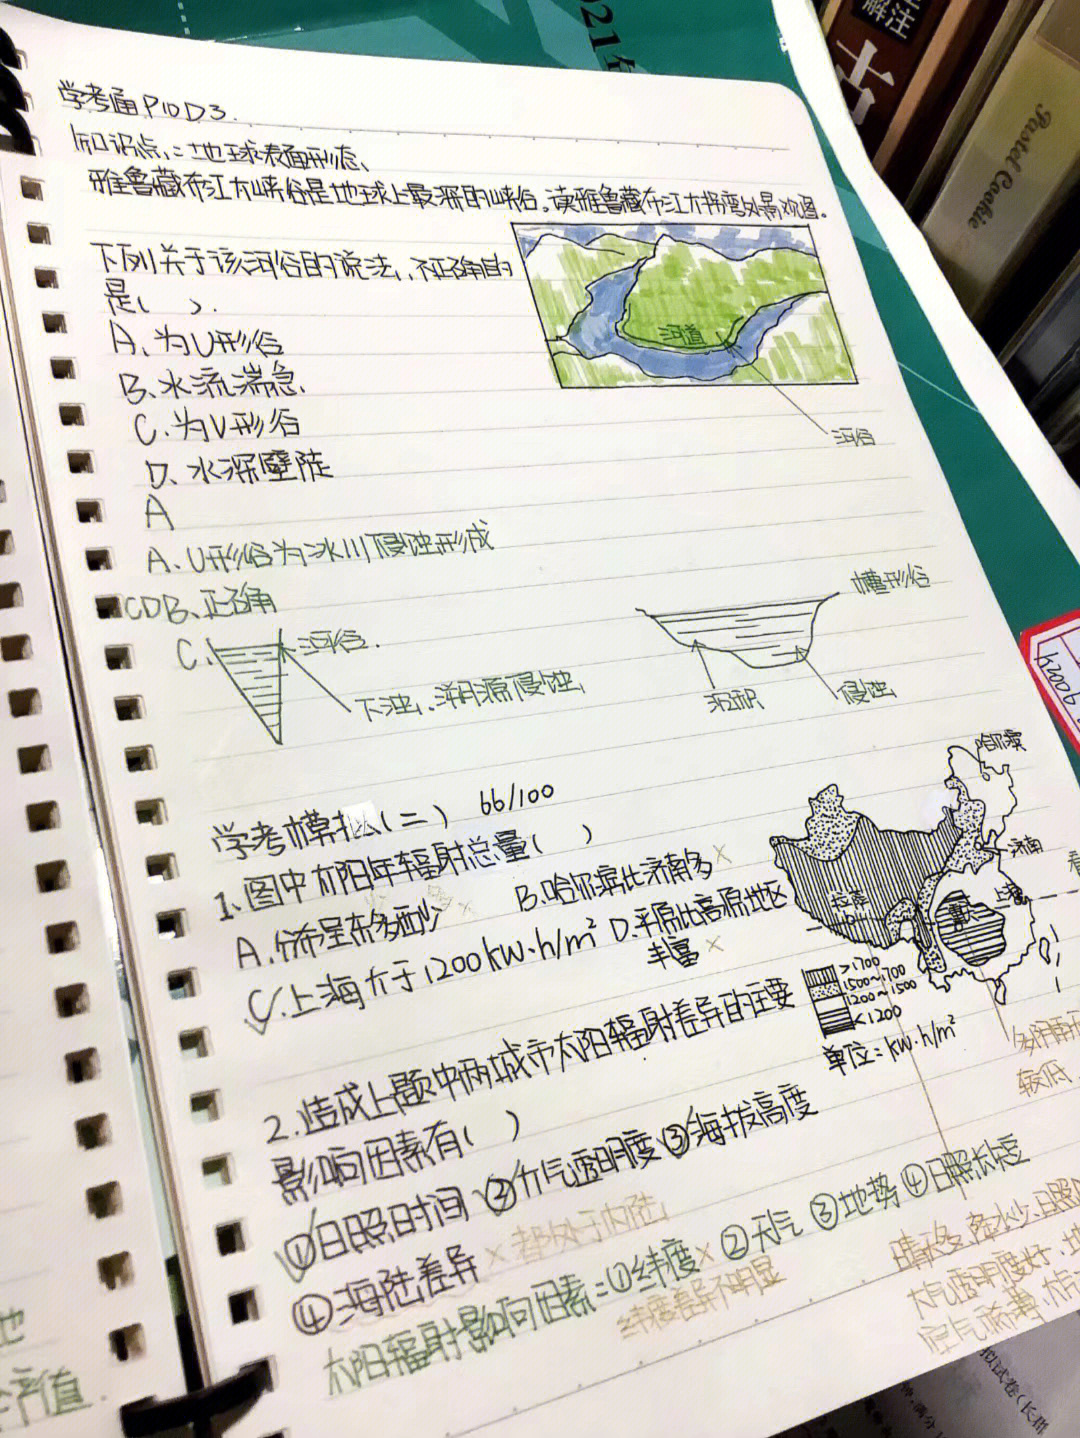 学考通P10D3.
知识点二:地球表面形态、
雅鲁藏布江大峡谷是地球上最深的峡谷。读雅鲁藏布江大拐弯处景观图。
下列关于该河谷的说法,不正确的
是( ).
A、为U形谷
B、水流湍急.
C.为V形谷
D、水深壁陡
A
A、U形谷为冰川侵蚀形成
CDB、正确
C.
河谷.
下蚀、溯源侵蚀
河道
河谷
槽形谷
沉积
侵蚀
学考模拟(二) 66/100
1、图中太阳年辐射总量( )
A、分布呈东多西少
B、哈尔滨比济南多×
C、上海大于1200kw·h/m²
D、平原比高原地区
丰富×
哈尔滨
济南
上海
拉萨
>1700
1500~1700
1200~1500
<1200
单位:kw·h/m²
2.造成上题中两城市太阳辐射差异的主要
影响因素有( )
①日照时间 ②大气透明度 ③海拔高度
④海陆差异 × 都处于内陆
太阳辐射影响因素:①纬度× ②天气 ③地势 ④日照长短
纬度差异不明显
较低
晴天多,降水少,日照
大气透明度好
空气稀薄,大气
产值
2021
解注
古
Pastel Cookie
K2006
拟试卷(长郡